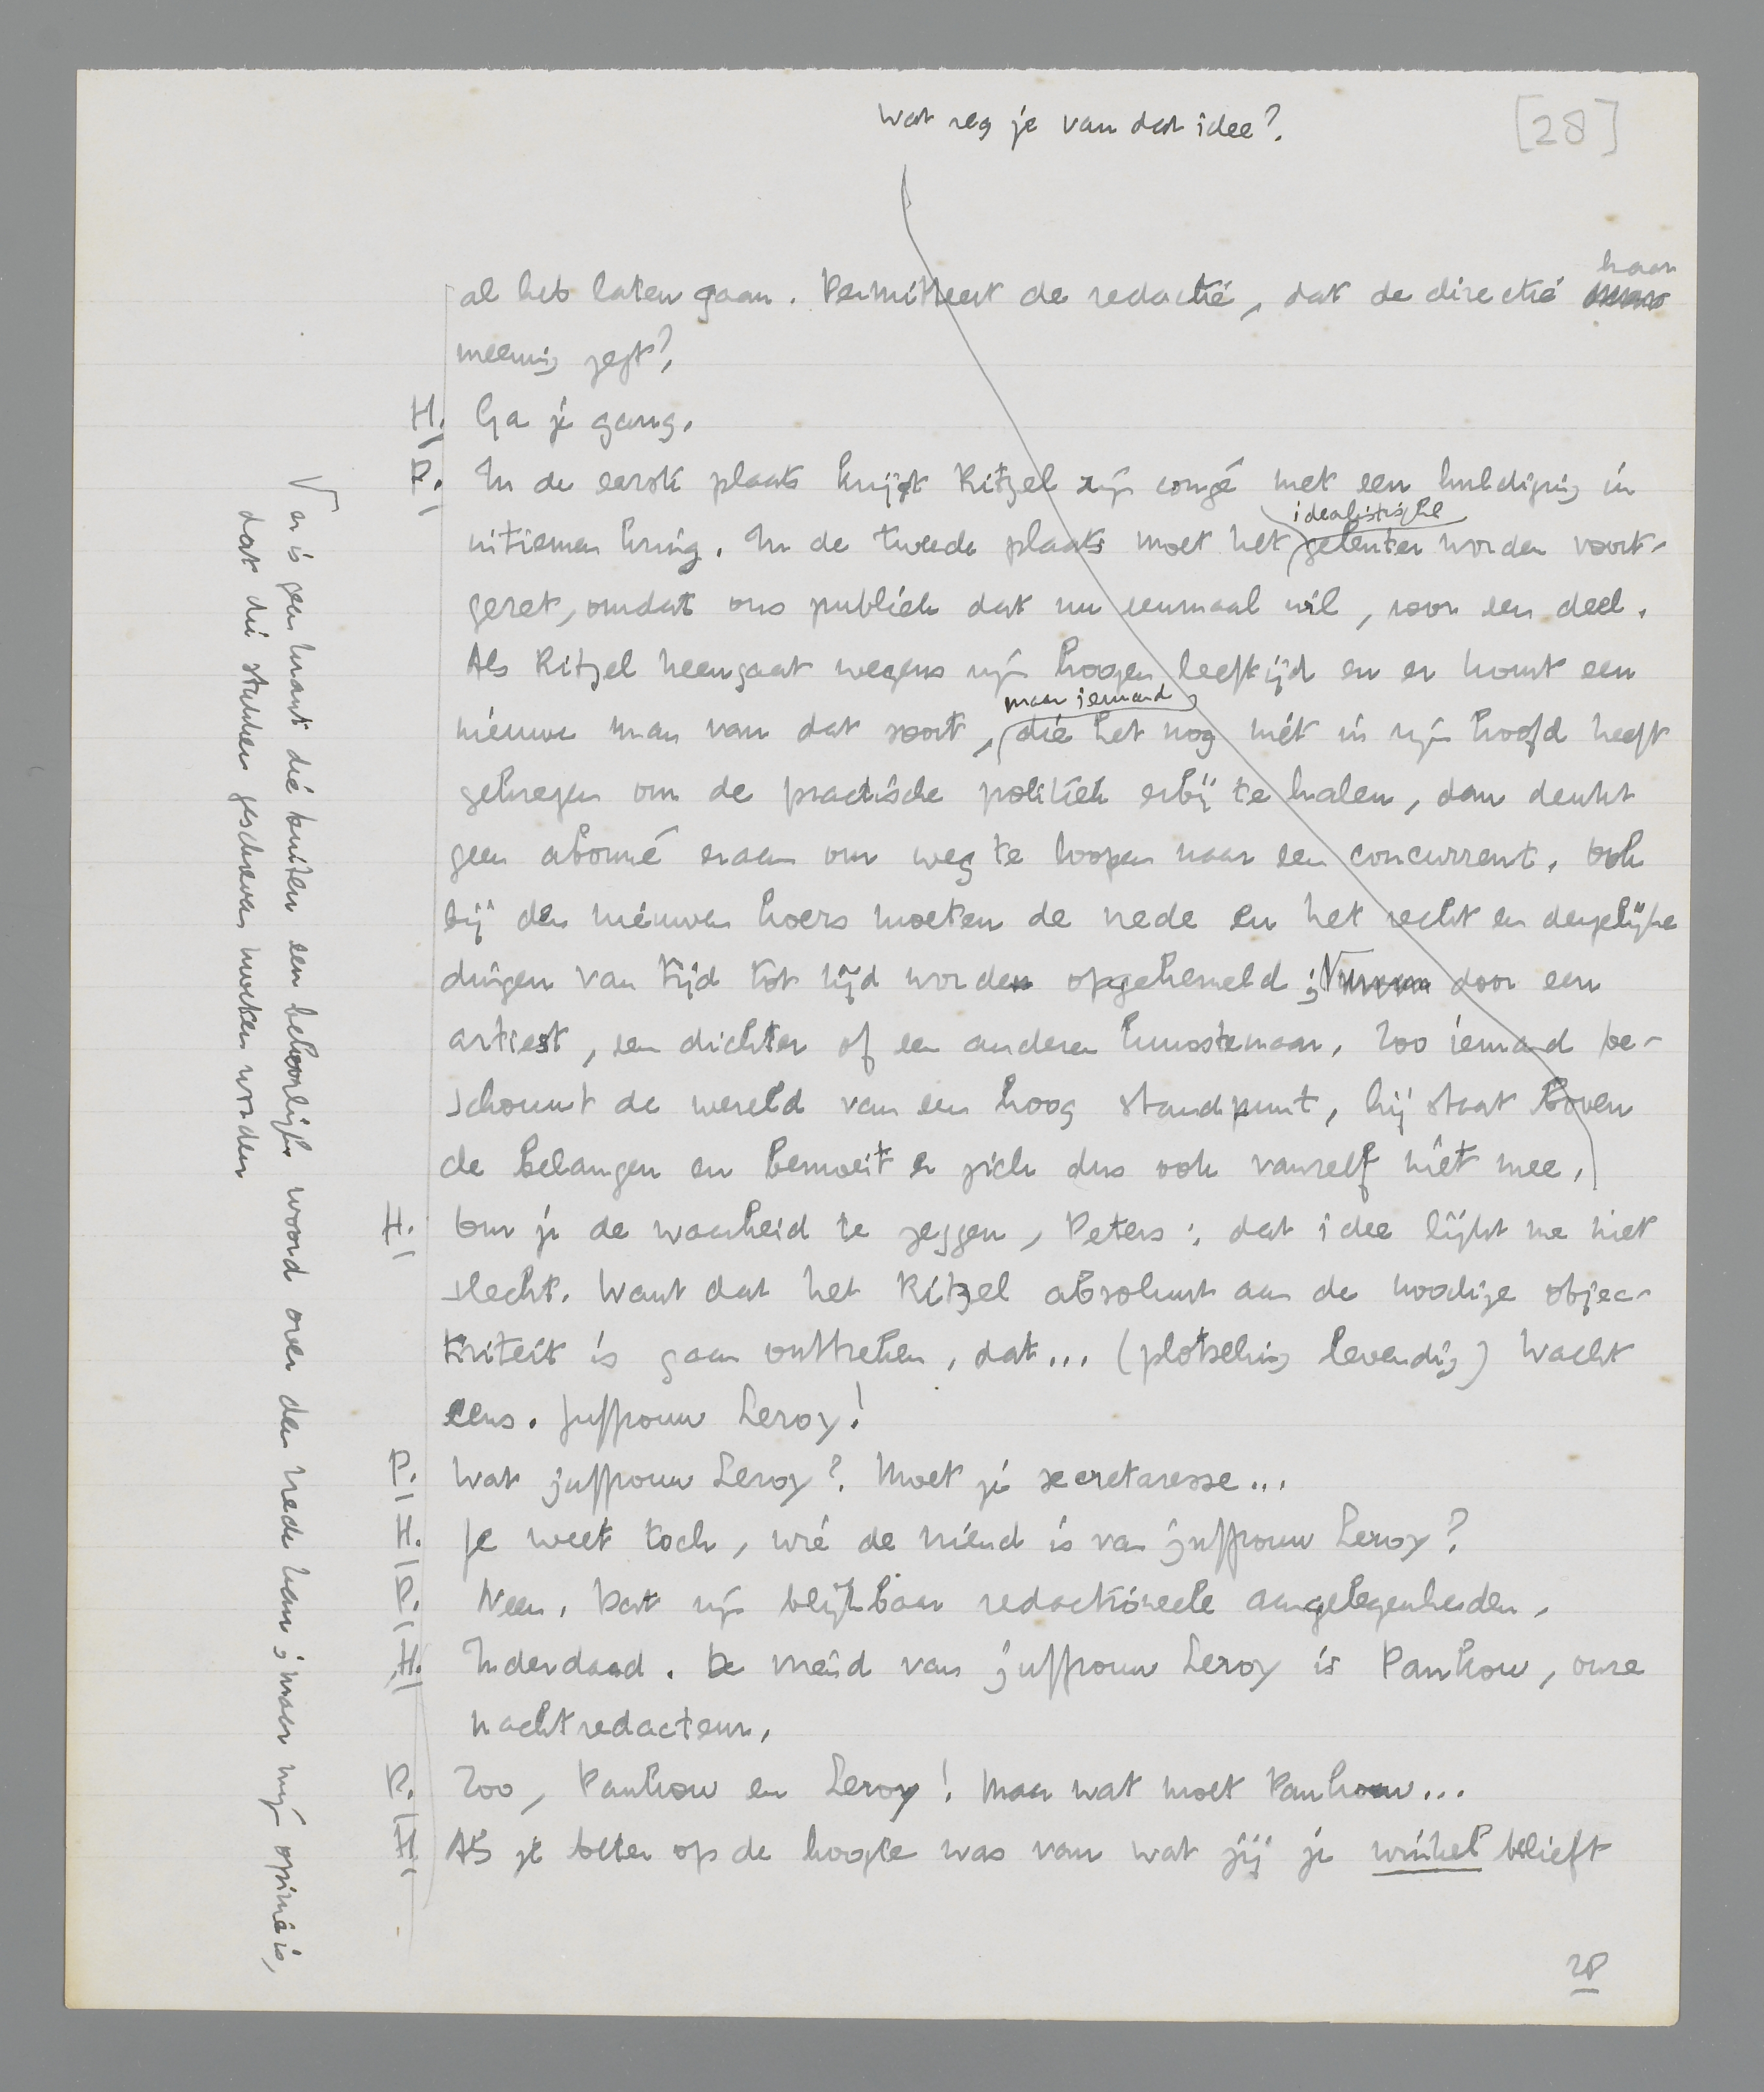 Wat zeg je van dat idee?
[28]
al heb laten gaan. Permitteert de redactie, dat de directie haar
meening zegt?
H. Ga je gang.
P. In de eerste plaats krijgt Ritzel zijn congé met een huldiging in
intiemen kring. In de tweede plaats moet het idealistische geleuter worden voort-
gezet, omdat ons publiek dat nu eenmaal wil, voor een deel.
Als Ritzel heengaat wegens zijn hoogen leeftijd en er komt een
nieuwe man van dat soort, maar iemand, die het nog niét in zijn hoofd heeft
gekregen om de practische politiek erbij te halen, dan denkt
geen abonné eraan om weg te loopen naar een concurrent. Ook
bij den nieuwen koers moeten de vrede en het recht en dergelijke
dingen van tijd tot tijd worden opgehemeld; √ door een
artiest, een dichter of een anderen kunstenaar. Zoo iemand be-
schouwt de wereld van een hoog standpunt, hij staat boven
de belangen en bemoeit er zich dus ook vanzelf niét mee.
H. Om je de waarheid te zeggen, Peters: dat idee lijkt me niet
slecht. Want dat het Ritzel absoluut aan de noodige objec-
tiviteit is gaan ontbreken, dat... (plotseling levendig) Wacht
eens. Juffrouw Leroy!
P. Wat juffrouw Leroy? Moet je secretaresse...
H. Je weet toch, wié de vriend is van juffrouw Leroy?
P. Neen. Dat zijn blijkbaar redactioneele aangelegenheden.
H. Inderdaad. De vriend van juffrouw Leroy is Pankow, onze
nachtredacteur.
P. Zoo, Pankow en Leroy! Maar wat moet Pankow...
H. Als je beter op de hoogte was van wat jij je winkel belieft
√ er is geen krant die buiten een behoorlijk woord over den vrede kan; maar mijn opinie is,
dat die stukken geschreven moeten worden
28